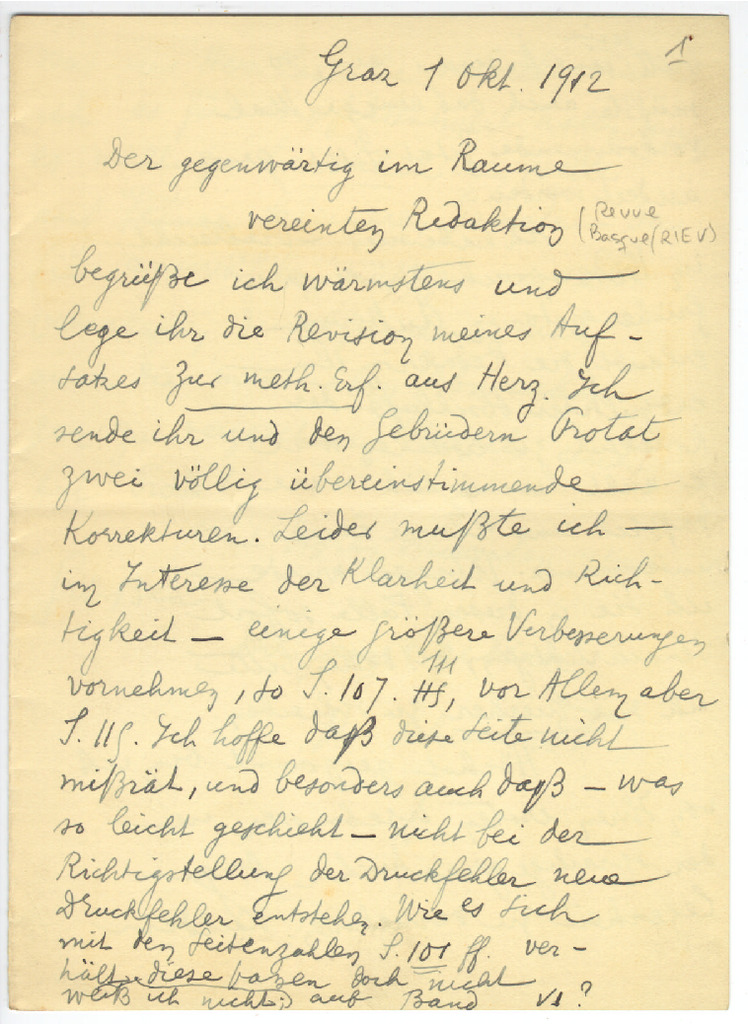 1
Graz 1 Okt. 1912
Der gegenwärtig im Raume
vereinten Redaktion (Revue
Basque (RIEV)
begrüße ich wärmstens und
lege ihr die Revision meines Auf-
satzes Zur meth. Erf. ans Herz. Ich
sende ihr und den Gebrüdern Protat
zwei völlig übereinstimmende
Korrekturen. Leider mußte ich —
im Interesse der Klarheit und Rich-
tigkeit — einige größere Verbesserungen
vornehmen, so S. 107. 111, vor Allem aber
S. 115. Ich hoffe daß diese Seite nicht
mißrät, und besonders auch daß — was
so leicht geschieht — nicht bei der
Richtigstellung der Druckfehler neue
Druckfehler entstehen. Wie es sich
mit den Seitenzahlen S. 101 ff. ver-
hält, diese passen doch nicht
weiß ich nicht; auf Band VI?